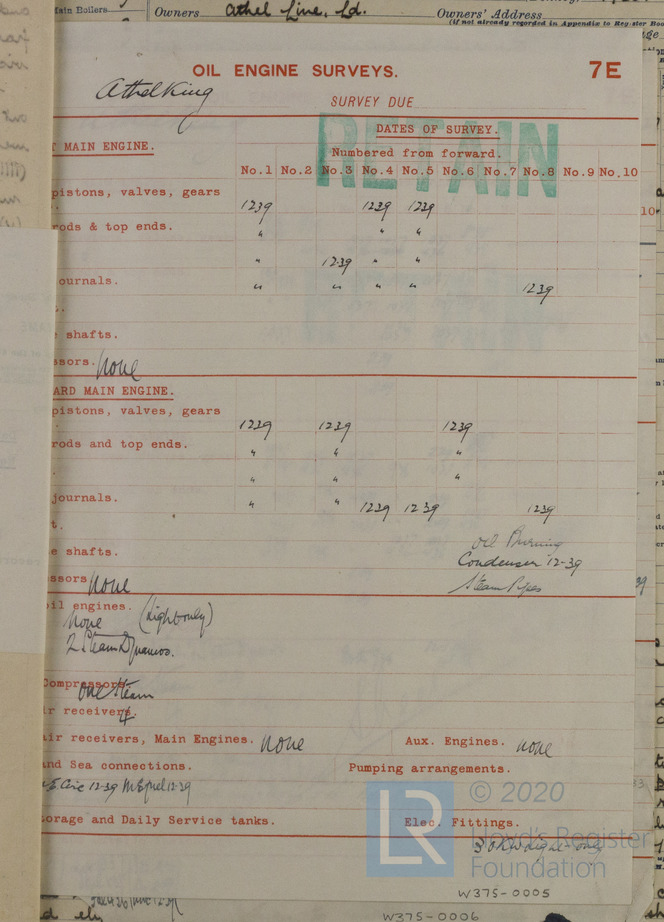 ain Boilers Owners Athel Line, Ld. Owners' Address
(if not already recorded in Appendix to Register Boo
OIL ENGINE SURVEYS. 7E
Athelking
SURVEY DUE
RETAIN
DATES OF SURVEY.
T MAIN ENGINE. Numbered from forward.
No.1 No.2 No.3 No.4 No.5 No.6 No.7 No.8 No.9 No.10
pistons, valves, gears
12.39 12.39 12.39
rods & top ends. " " "
" 12.39 " "
ournals. " " " " 12.39
t.
e shafts.
ssors. None
ARD MAIN ENGINE.
pistons, valves, gears
12.39 12.39 12.39
rods and top ends. " " "
" " "
journals. " " 12.39 12.39 12.39
t.
e shafts. Oil Burning
Condenser 12-39
ssors None Steam Pipes
oil engines.
None
2 Steam Dynamos.
Compressors.
One Steam
ir receivers. 4
ir receivers, Main Engines. None Aux. Engines. None
nd Sea connections. Pumping arrangements.
12-39 12-39
orage and Daily Service tanks. Elec. Fittings.
LR
© 2020
Lloyd's Register
Foundation
W375-0005
W375-0006